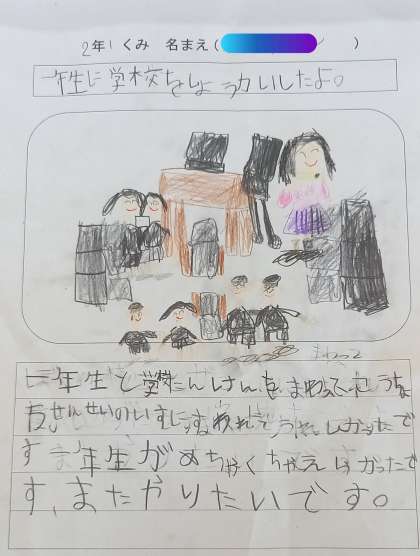 2年1くみ 名まえ( )
一年生に学校をしょうかいしたよ。
まわって
一年生と学校たんけんをまわってこうちょ
うせんせいのいすにすわれてうれしかったで
す 一年生がめちゃくちゃえしかったで
す、またやりたいです。